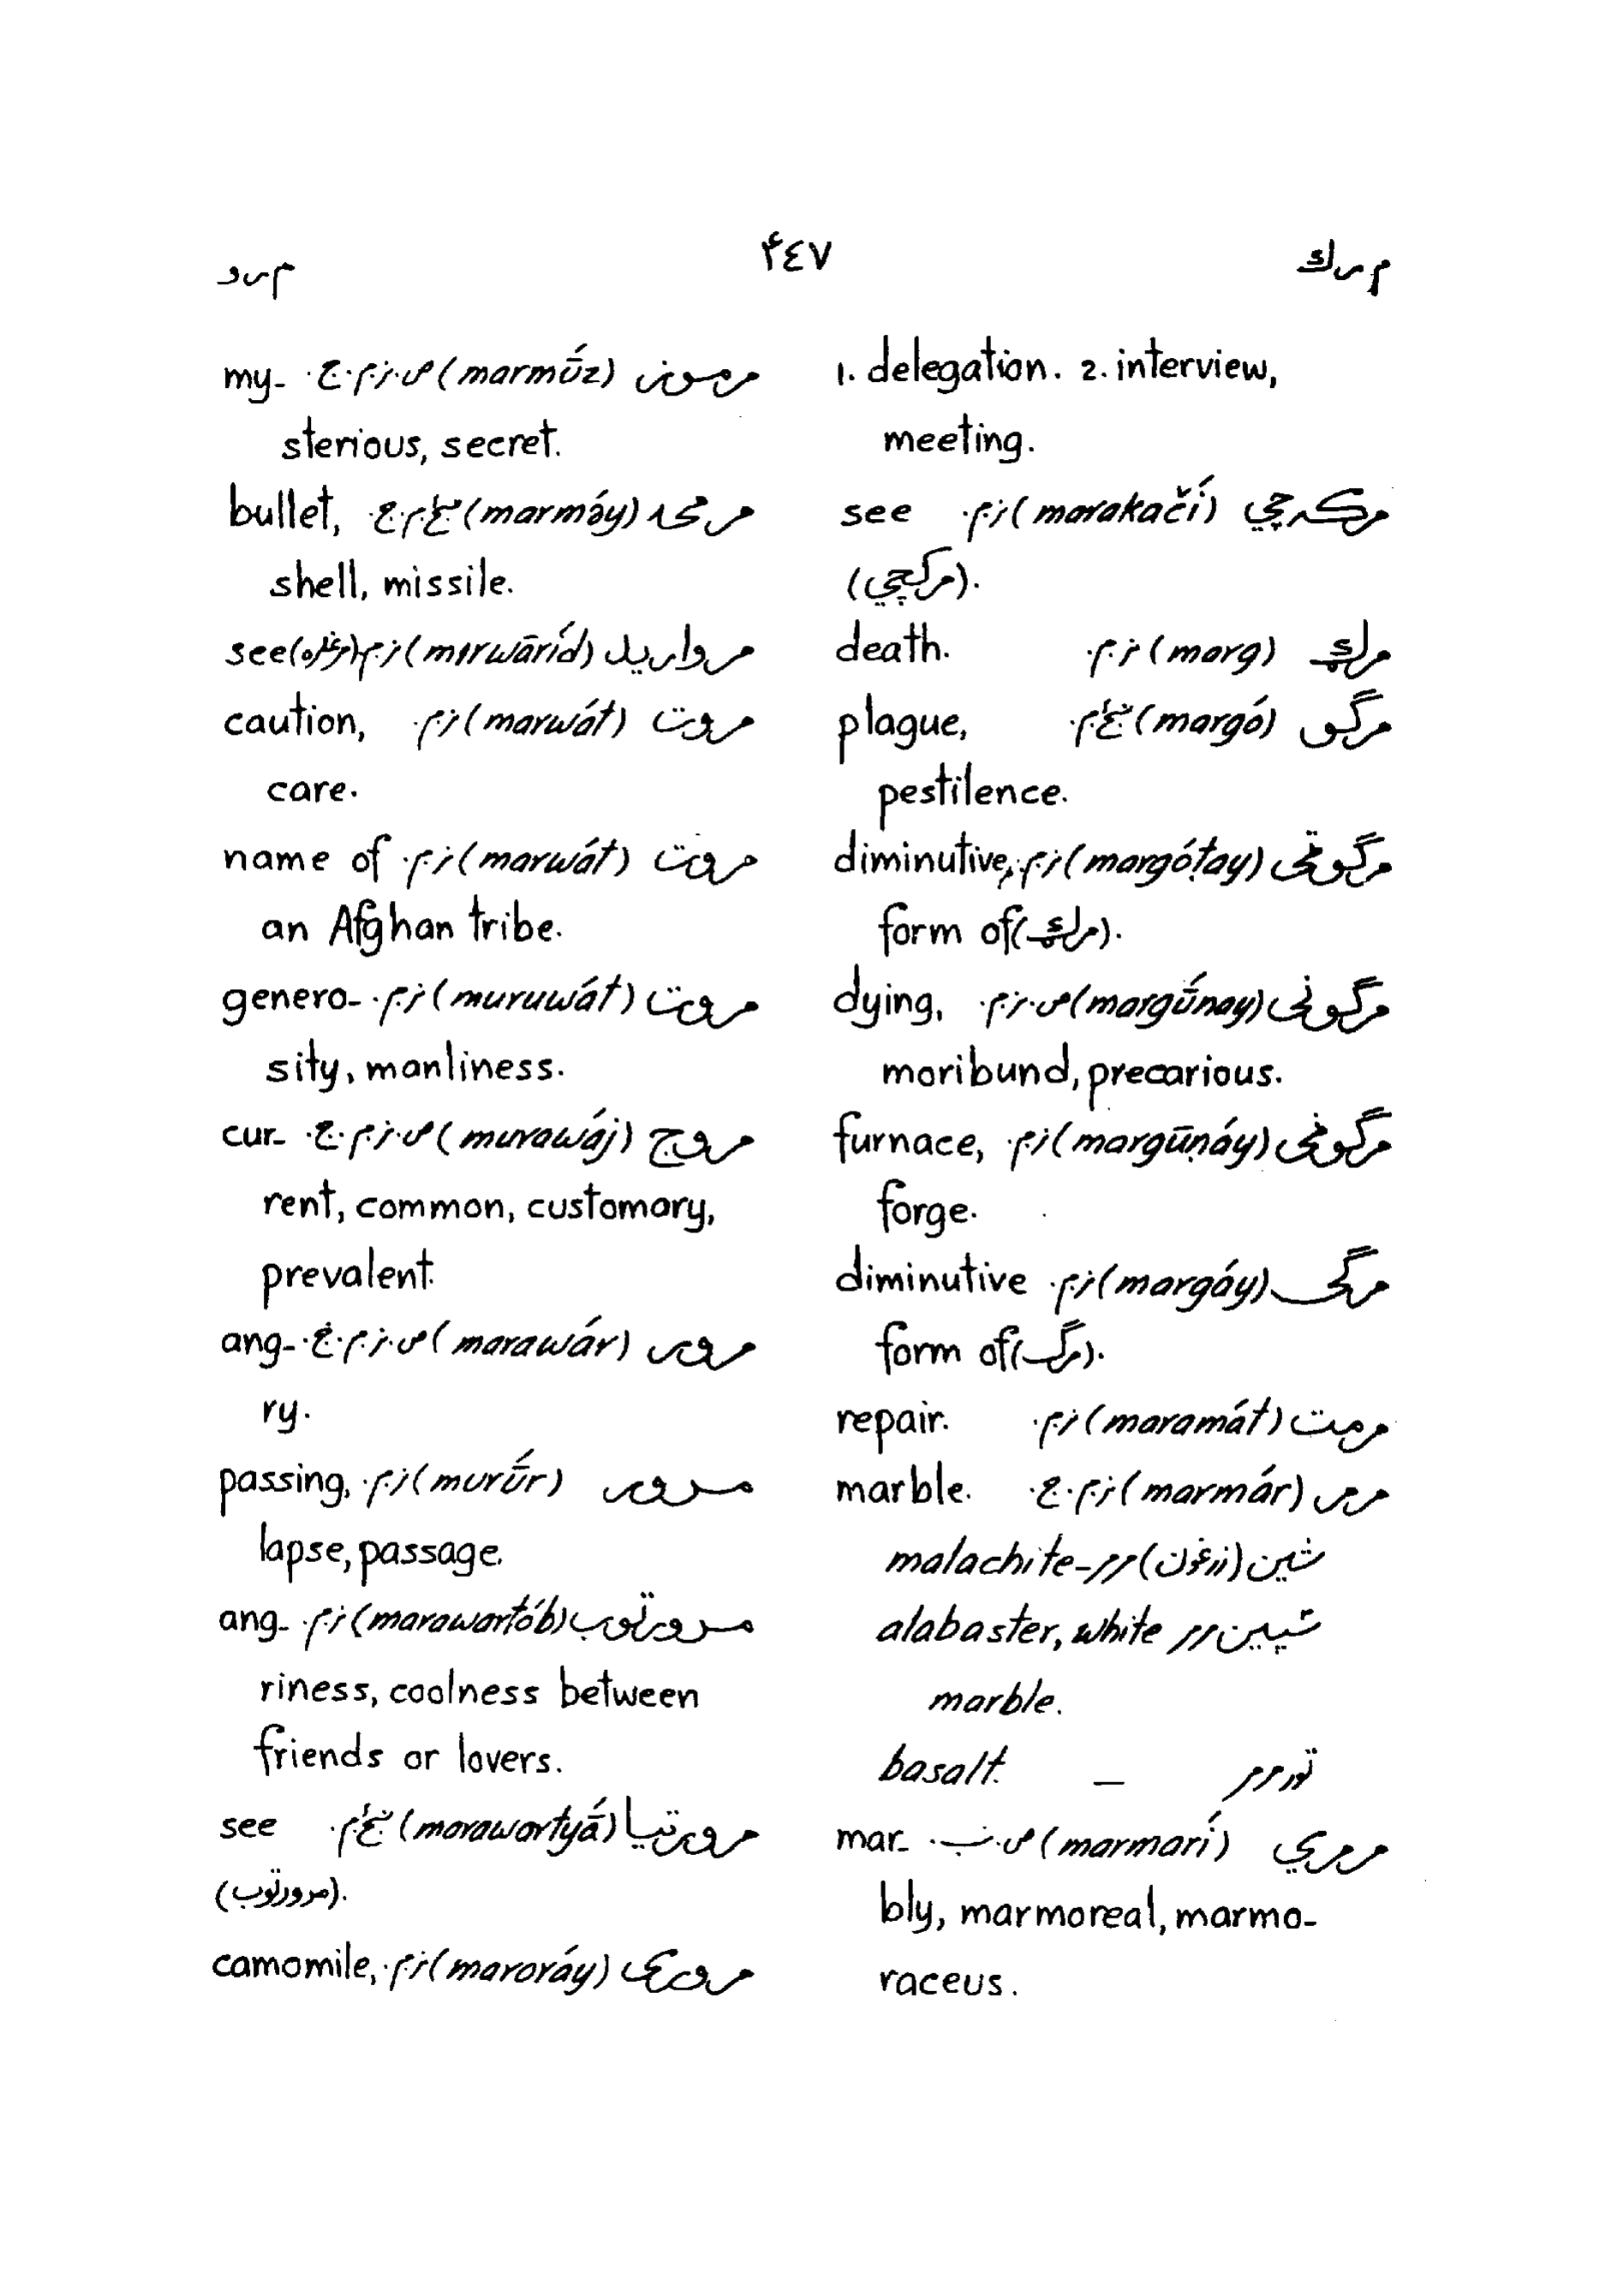 م ر ك
۴٤٧
م ر و
1. delegation. 2. interview,
meeting.
مركه چي (marakačí) ز.م. see
(مركچي).
مرګ (marg) ز.م. death.
مرگو (margó) ښځ.م. plague,
pestilence.
مرگوټی (margóṭay) ز.م. diminutive,
form of (مرګ).
مرگونی (margū́nay) ص.ز.م. dying,
moribund, precarious.
مرگوڼی (margūṇáy) ز.م. furnace,
forge.
مرگی (margáy) ز.م. diminutive
form of (مرگ).
مرمت (maramát) ز.م. repair.
مرمر (marmár) ز.م.ج. marble.
شين (زرغون) مرمر – malachite
سپين مرمر alabaster, white
marble.
تور مرمر – basalt.
مرمري (marmarí) ص.نـ.بـ. mar-
bly, marmoreal, marmo-
raceus.
مرموز (marmū́z) ص.ز.م.ج. my-
sterious, secret.
مرمۍ (marmə́y) ښځ.م.ج. bullet,
shell, missile.
مرواريد (mərwāríd) ز.م. (مرغلره) see
مروت (marwát) ز.م. caution,
care.
مروت (marwát) ز.م. name of
an Afghan tribe.
مروت (muruwát) ز.م. genero-
sity, manliness.
مروج (murawáj) ص.ز.م.ج. cur-
rent, common, customary,
prevalent.
مرور (marawár) ص.ز.م.ج. ang-
ry.
مرور (murū́r) ز.م. passing,
lapse, passage.
مرورتوب (marawartób) ز.م. ang-
riness, coolness between
friends or lovers.
مرورتيا (marawartyā́) ښځ.م. see
(مرورتوب).
مروری (maroráy) ز.م. camomile,